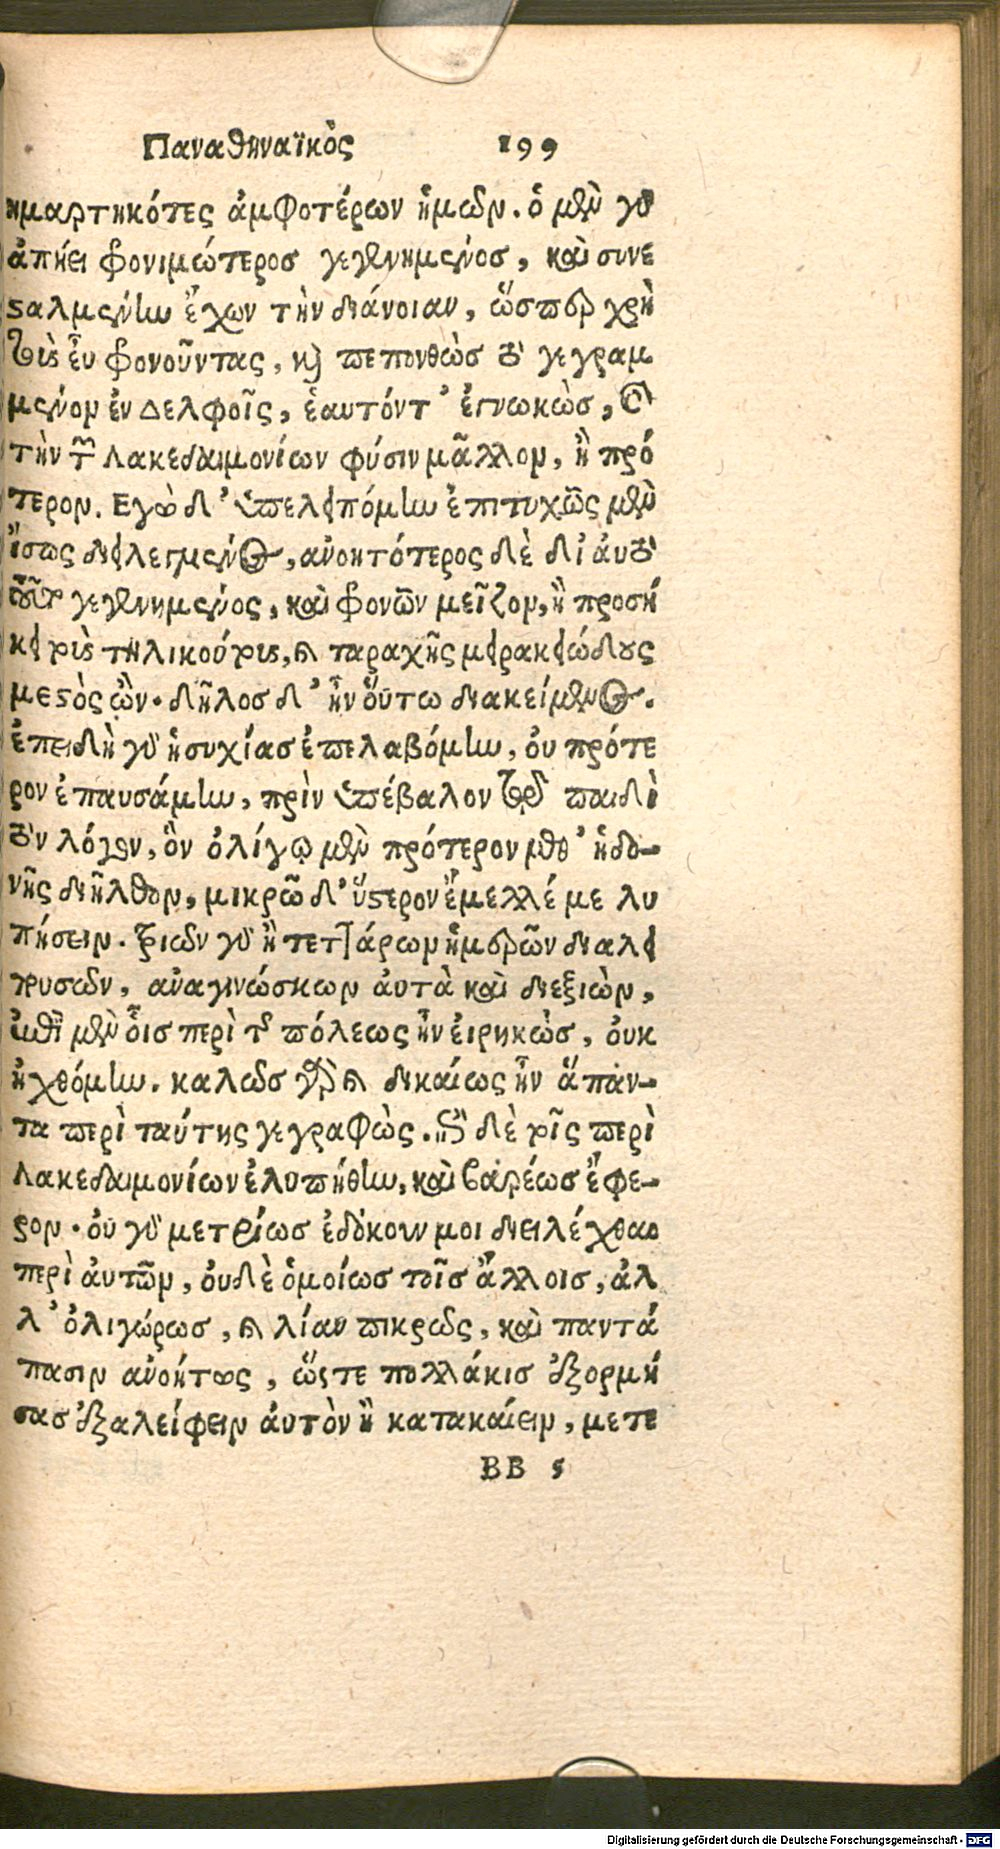 Παναθηναϊκὸς 199
ημαρτηκότες ἀμφοτέρων ἡμῶν. ὁ μὲν γὰρ
ἀπῄει φρονιμώτερος γεγενημένος, καὶ συνε
σαλμένην ἔχων τὴν διάνοιαν, ὥσπερ χρὴ
τοὺς εὖ φρονοῦντας, καὶ πεπονθὼς τὸ γεγραμ
μένον ἐν Δελφοῖς, ἑαυτόντ' ἐγνωκὼς, καὶ
τὴν τῶν Λακεδαιμονίων φύσιν μᾶλλον, ἢ πρό
τερον. Εγὼ δ' ὑπελειπόμην ἐπιτυχῶς μὲν
ἴσως διειλεγμένος, ἀνοητότερος δὲ δι' ἀυτὸ
τοῦτο γεγενημένος, καὶ φρονῶν μεῖζον, ἢ προσή
κει τοὺς τηλικούτους, καὶ ταραχῆς μειρακιώδους
μεστὸς ὤν. δῆλος δ' ἦν ὅυτω διακείμενος.
ἐπειδὴ γὰρ ἡσυχίας ἐπελαβόμην, ὀυ πρότε
ρον ἐπαυσάμην, πρὶν ὑπέβαλον τῷ παιδὶ
τὸν λόγον, ὃν ὀλίγῳ μὲν πρότερον μεθ' ἡδο-
νῆς διῆλθον, μικρῷ δ' ὕστερον ἔμελλέ με λυ
πήσειν. τριῶν γὰρ ἢ τεττάρων ἡμερῶν διαλει
πουσῶν, ἀναγινώσκων ἀυτὰ καὶ διεξιὼν,
ἐπὶ μὲν οἷς περὶ τῆς πόλεως ἦν ἐιρηκὼς, ὀυκ
ἠχθόμην. καλῶς γὰρ καὶ δικαίως ἦν ἅπαν-
τα περὶ ταύτης γεγραφὼς. ἐπὶ δὲ τοῖς περὶ
Λακεδαιμονίων ἐλυπήθην, καὶ βαρέως ἔφε-
ρον. ὀυ γὰρ μετρίως ἐδόκουν μοι διειλέχθαι
περὶ ἀυτῶν, ὀυδὲ ὁμοίως τοῖς ἄλλοις, ἀλ
λ' ὀλιγώρως, καὶ λίαν πικρῶς, καὶ παντά
πασιν ἀνοήτως, ὥστε πολλάκις ἐξορμή
σας ἐξαλείφειν ἀυτὸν ἢ κατακαίειν, μετε
BB 5
Digitalisierung gefördert durch die Deutsche Forschungsgemeinschaft - DFG